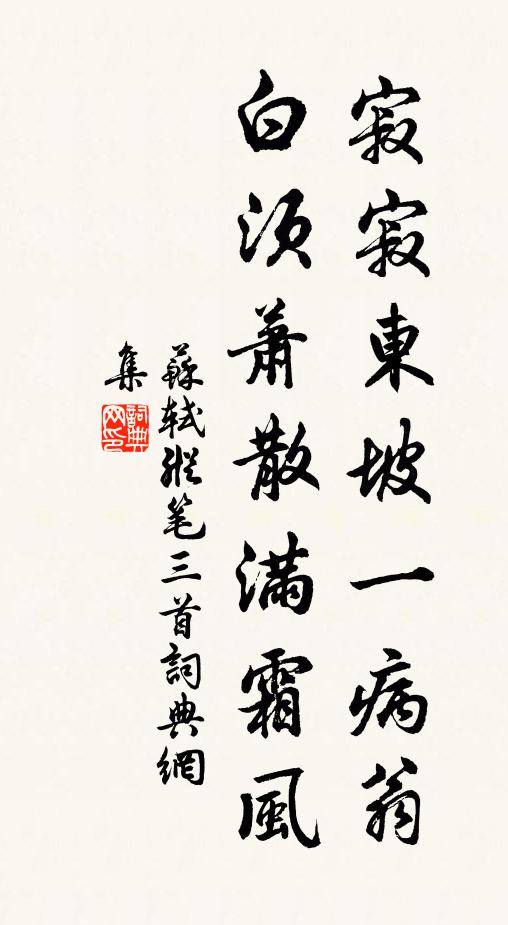 寂寂東坡一病翁
白须萧散滿霜風
蘇轼縱笔三首詞典網
集
詞典
网印